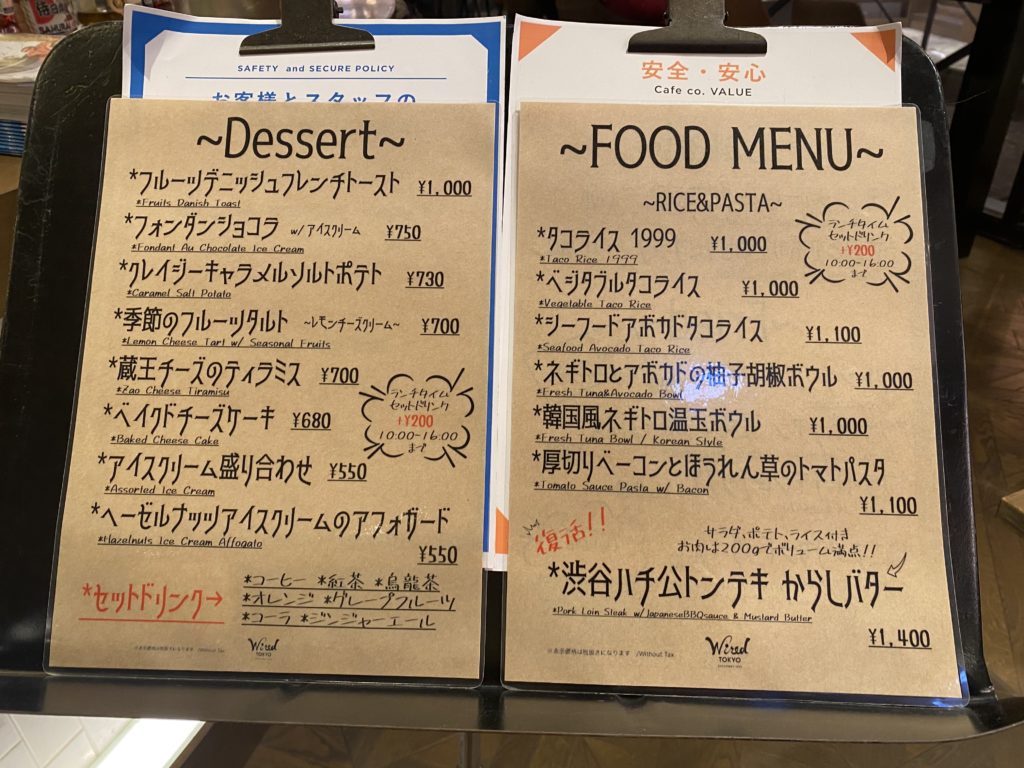 SAFETY and SECURE POLICY
お客様とスタッフの
~Dessert~
*フルーツデニッシュフレンチトースト ¥1,000
*Fruits Danish Toast
*フォンダンショコラ w/アイスクリーム ¥750
*Fondant Au Chocolate Ice Cream
*クレイジーキャラメルソルトポテト ¥730
*Caramel Salt Potato
*季節のフルーツタルト ~レモンチーズクリーム~ ¥700
*Lemon Cheese Tart w/ Seasonal Fruits
*蔵王チーズのティラミス ¥700
*Zao Cheese Tiramisu
*ベイクドチーズケーキ ¥680
*Baked Cheese Cake
ランチタイム
セットドリンク
+¥200
10:00-16:00
まで
*アイスクリーム盛り合わせ ¥550
*Assorted Ice Cream
*ヘーゼルナッツアイスクリームのアフォガード
*Hazelnuts Ice Cream Affogato
¥550
*セットドリンク→
*コーヒー *紅茶 *烏龍茶
*オレンジ *グレープフルーツ
*コーラ *ジンジャーエール
※表示価格は税抜きになります /Without Tax
Wired
TOKYO
安全・安心
Cafe co. VALUE
~FOOD MENU~
~RICE&PASTA~
ランチタイム
セットドリンク
+¥200
10:00-16:00
まで
*タコライス 1999 ¥1,000
*Taco Rice 1999
*ベジタブルタコライス ¥1,000
*Vegetable Taco Rice
*シーフードアボカドタコライス ¥1,100
*Seafood Avocado Taco Rice
*ネギトロとアボカドの柚子胡椒ボウル ¥1,000
*Fresh Tuna&Avocado Bowl
*韓国風ネギトロ温玉ボウル ¥1,000
*Fresh Tuna Bowl / Korean Style
*厚切りベーコンとほうれん草のトマトパスタ
*Tomato Sauce Pasta w/ Bacon
¥1,100
復活!!
サラダ、ポテト、ライス付き
お肉は200gでボリューム満点!!
*渋谷ハチ公トンテキ からしバター
*Pork Loin Steak w/JapaneseBBQsauce & Mustard Butter
¥1,400
※表示価格は税抜きになります /Without Tax
Wired
TOKYO